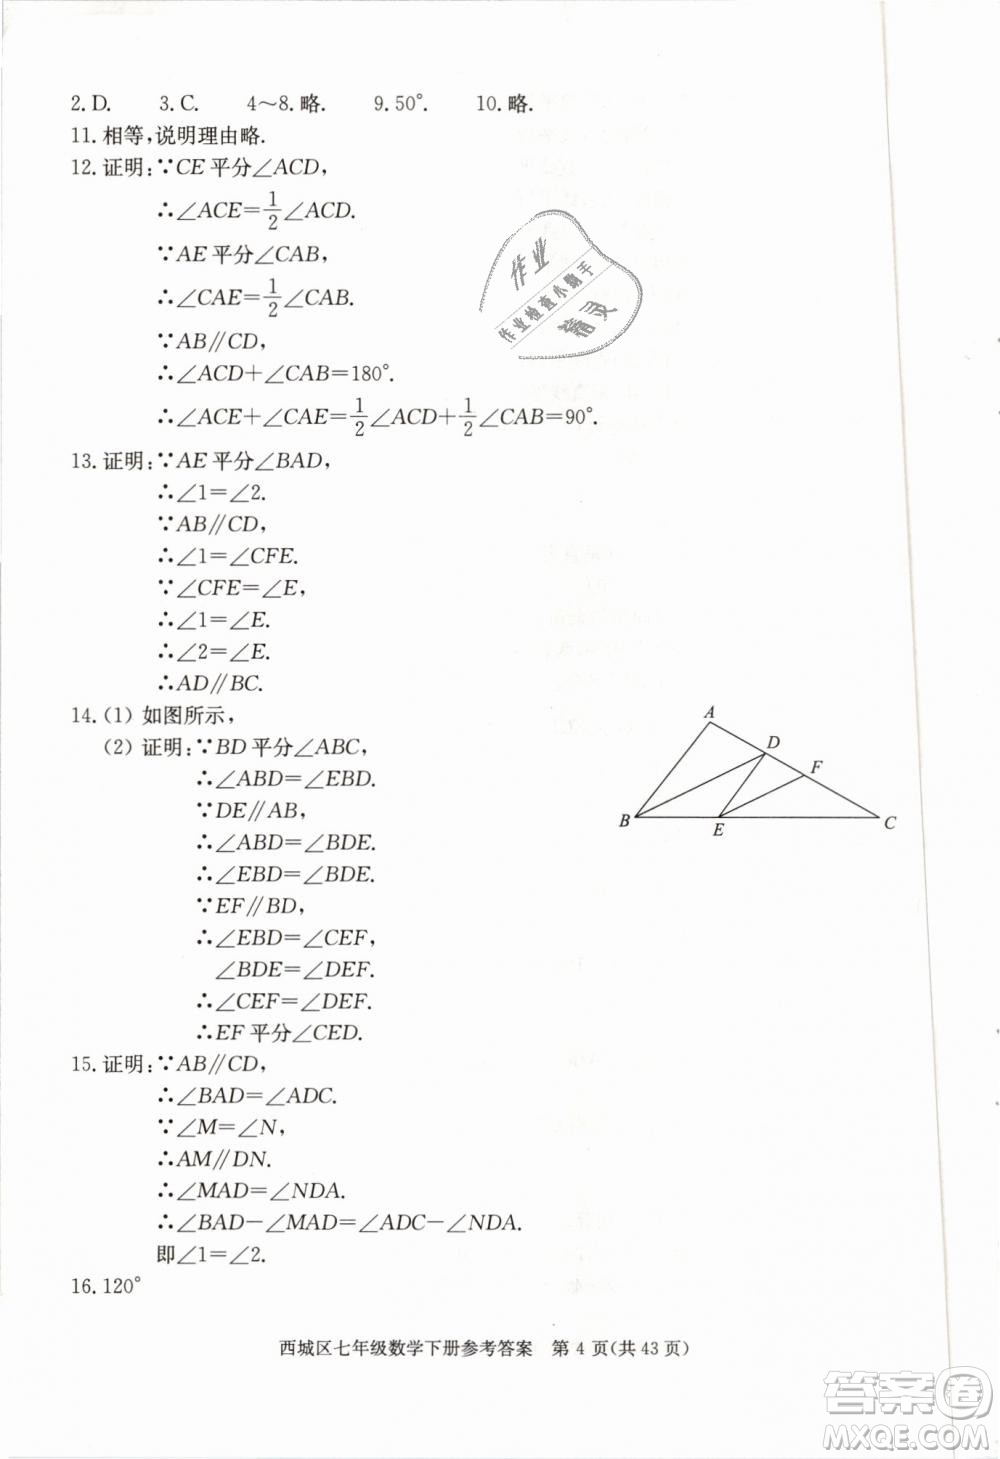 2.D.  3.C.  4～8.略.  9.50°.  10.略.
11.相等,说明理由略.
12.证明:∵CE平分∠ACD,
∴∠ACE=1/2∠ACD.
∵AE平分∠CAB,
∴∠CAE=1/2∠CAB.
∵AB∥CD,
∴∠ACD+∠CAB=180°.
∴∠ACE+∠CAE=1/2∠ACD+1/2∠CAB=90°.
作业
作业检查小助手
精灵
13.证明:∵AE平分∠BAD,
∴∠1=∠2.
∵AB∥CD,
∴∠1=∠CFE.
∵∠CFE=∠E,
∴∠1=∠E.
∴∠2=∠E.
∴AD∥BC.
14.(1) 如图所示,
(2) 证明:∵BD平分∠ABC,
∴∠ABD=∠EBD.
∵DE∥AB,
∴∠ABD=∠BDE.
∴∠EBD=∠BDE.
∵EF∥BD,
∴∠EBD=∠CEF,
∠BDE=∠DEF.
∴∠CEF=∠DEF.
∴EF平分∠CED.
A
D
F
B
E
C
15.证明:∵AB∥CD,
∴∠BAD=∠ADC.
∵∠M=∠N,
∴AM∥DN.
∴∠MAD=∠NDA.
∴∠BAD-∠MAD=∠ADC-∠NDA.
即∠1=∠2.
16.120°
西城区七年级数学下册参考答案 第4页(共43页)
答案卷
MXQE.COM